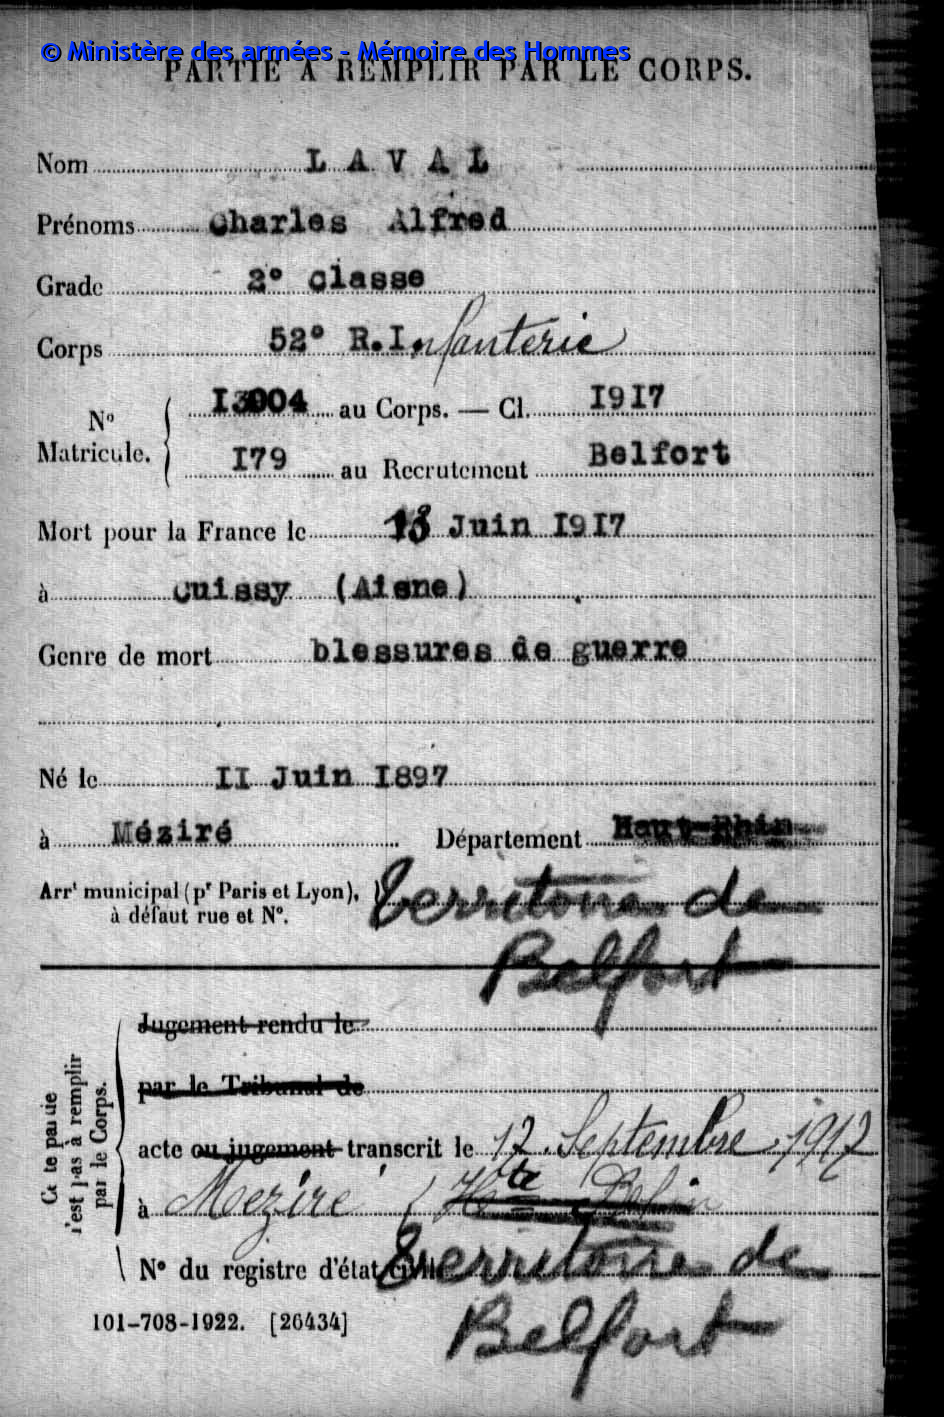 © Ministère des armées - Mémoire des Hommes
PARTIE À REMPLIR PAR LE CORPS.
Nom LAVAL
Prénoms Charles Alfred
Grade 2° classe
Corps 52° R.Infanterie
N° Matricule. I3004 au Corps. — Cl. I9I7
I79 au Recrutement Belfort
Mort pour la France le 13 Juin I9I7
à Cuissy (Aisne)
Genre de mort blessures de guerre
Né le II Juin I897
à Méziré Département Haut-Rhin
Arrt municipal (pr Paris et Lyon), Territoire de
à défaut rue et N°. Belfort
Jugement rendu le
par le Tribunal de
acte ou jugement transcrit le 12 Septembre 1917
à Meziré (Hte Rhin
N° du registre d'état civil Territoire de
Belfort
Cette partie n'est pas à remplir par le Corps.
101-708-1922. [26434]